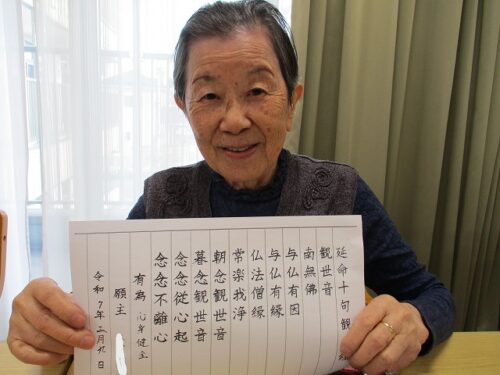 延命十句觀
觀世音
南無佛
与仏有因
与仏有縁
仏法僧縁
常楽我淨
朝念觀世音
暮念觀世音
念念從心起
念念不離心
有為 心身健全
願主
令和7年二月九日